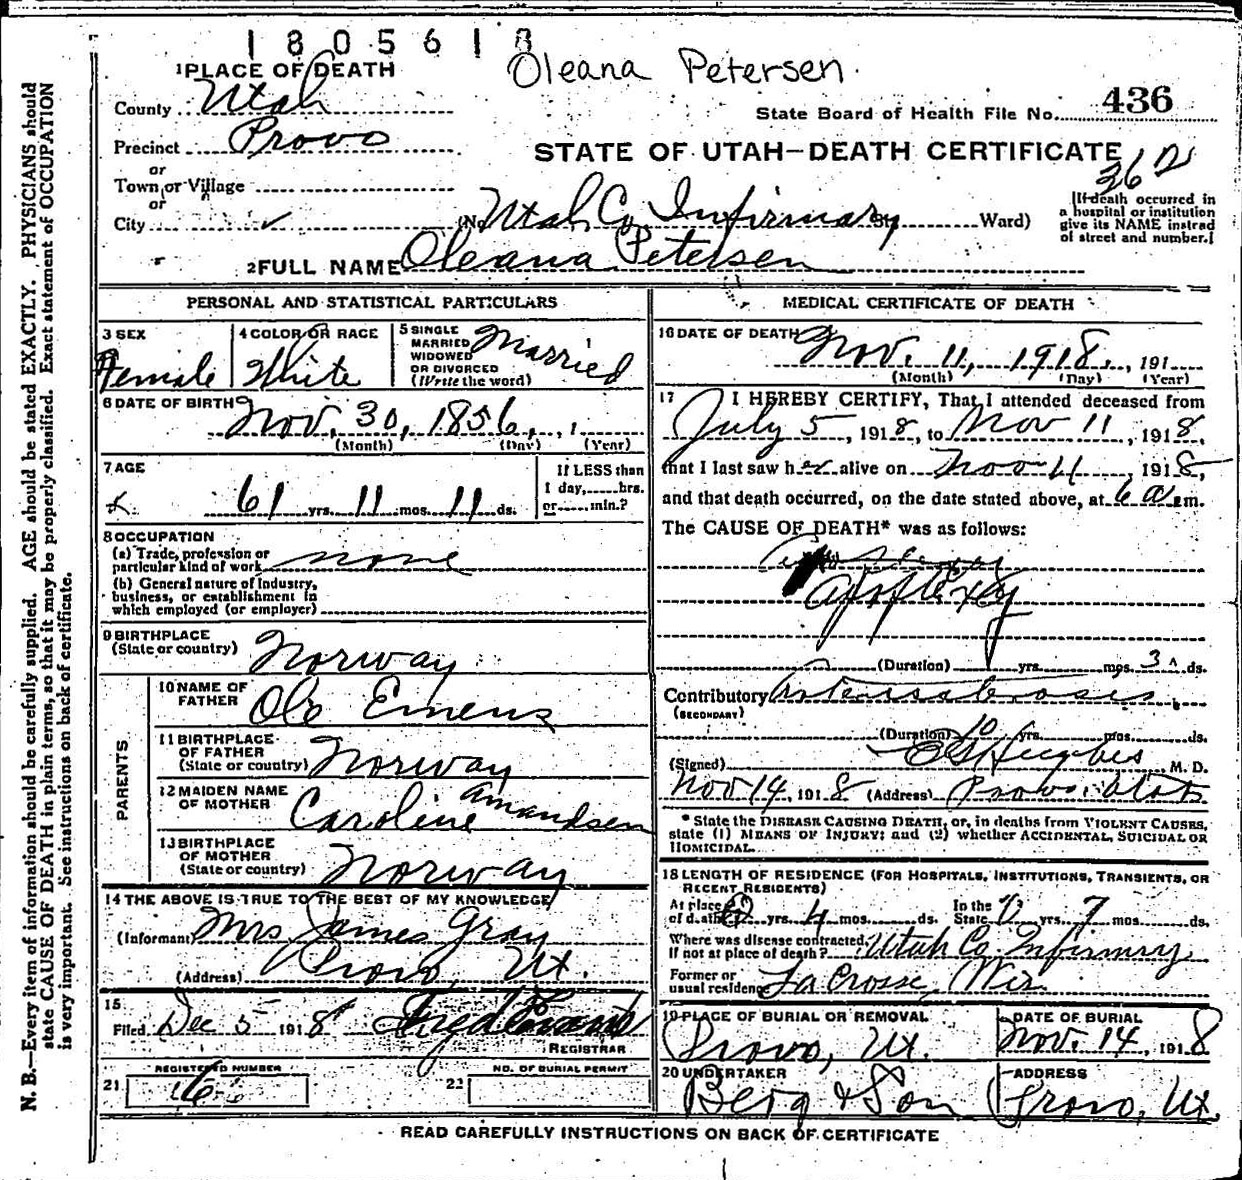 1805618
Oleana Petersen.
1 PLACE OF DEATH
County Utah
State Board of Health File No. 436
Precinct Provo
STATE OF UTAH—DEATH CERTIFICATE
or
Town or Village
or
City
(No. Utah Co Infirmary Ward)
[If death occurred in
a hospital or institution
give its NAME instead
of street and number.]
2 FULL NAME Oleana Petersen
PERSONAL AND STATISTICAL PARTICULARS
3 SEX
Female
4 COLOR OR RACE
White
5 SINGLE
MARRIED
WIDOWED
OR DIVORCED
(Write the word)
Married
6 DATE OF BIRTH
Nov. 30, 1856, 1
(Month) (Day) (Year)
7 AGE
61 yrs. 11 mos. 11 ds.
If LESS than
1 day, hrs.
or min.?
8 OCCUPATION
(a) Trade, profession or
particular kind of work none
(b) General nature of Industry,
business, or establishment in
which employed (or employer)
9 BIRTHPLACE
(State or country) Norway
PARENTS
10 NAME OF
FATHER Ole
11 BIRTHPLACE
OF FATHER
(State or country) Norway
12 MAIDEN NAME
OF MOTHER Caroline Amandsen
13 BIRTHPLACE
OF MOTHER
(State or country) Norway
14 THE ABOVE IS TRUE TO THE BEST OF MY KNOWLEDGE
(Informant) Mrs James Gray
(Address) Provo, Ut.
15
Filed Dec 5 1918
REGISTRAR
REGISTERED NUMBER
21
NO. OF BURIAL PERMIT
22
MEDICAL CERTIFICATE OF DEATH
16 DATE OF DEATH
Nov. 11, 1918, 191
(Month) (Day) (Year)
17 I HEREBY CERTIFY, That I attended deceased from
July 5, 1918, to Nov 11, 1918,
that I last saw her alive on Nov 11, 1918,
and that death occurred, on the date stated above, at 6 a.m.
The CAUSE OF DEATH* was as follows:
apoplexy
(Duration) yrs. mos. 3 ds.
Contributory Arteriosclerosis
(SECONDARY)
(Duration) 10 yrs. mos. ds.
(Signed) Hughes M. D.
Nov 14, 1918 (Address) Provo. Utah
* State the DISEASE CAUSING DEATH, or, in deaths from VIOLENT CAUSES,
state (1) MEANS OF INJURY; and (2) whether ACCIDENTAL, SUICIDAL OR
HOMICIDAL.
18 LENGTH OF RESIDENCE (FOR HOSPITALS, INSTITUTIONS, TRANSIENTS, OR
RECENT RESIDENTS)
At place
of death yrs. 4 mos. ds.
In the
State yrs. 7 mos. ds.
Where was disease contracted,
If not at place of death? Utah Co. Infirmry
Former or
usual residence La Crosse, Wis.
19 PLACE OF BURIAL OR REMOVAL
Provo, Ut.
DATE OF BURIAL
Nov. 14, 1918
20 UNDERTAKER
Berg & Son
ADDRESS
Provo, Ut.
READ CAREFULLY INSTRUCTIONS ON BACK OF CERTIFICATE
N. B.—Every item of information should be carefully supplied. AGE should be stated EXACTLY. PHYSICIANS should
state CAUSE OF DEATH in plain terms, so that it may be properly classified. Exact statement of OCCUPATION
is very important. See instructions on back of certificate.